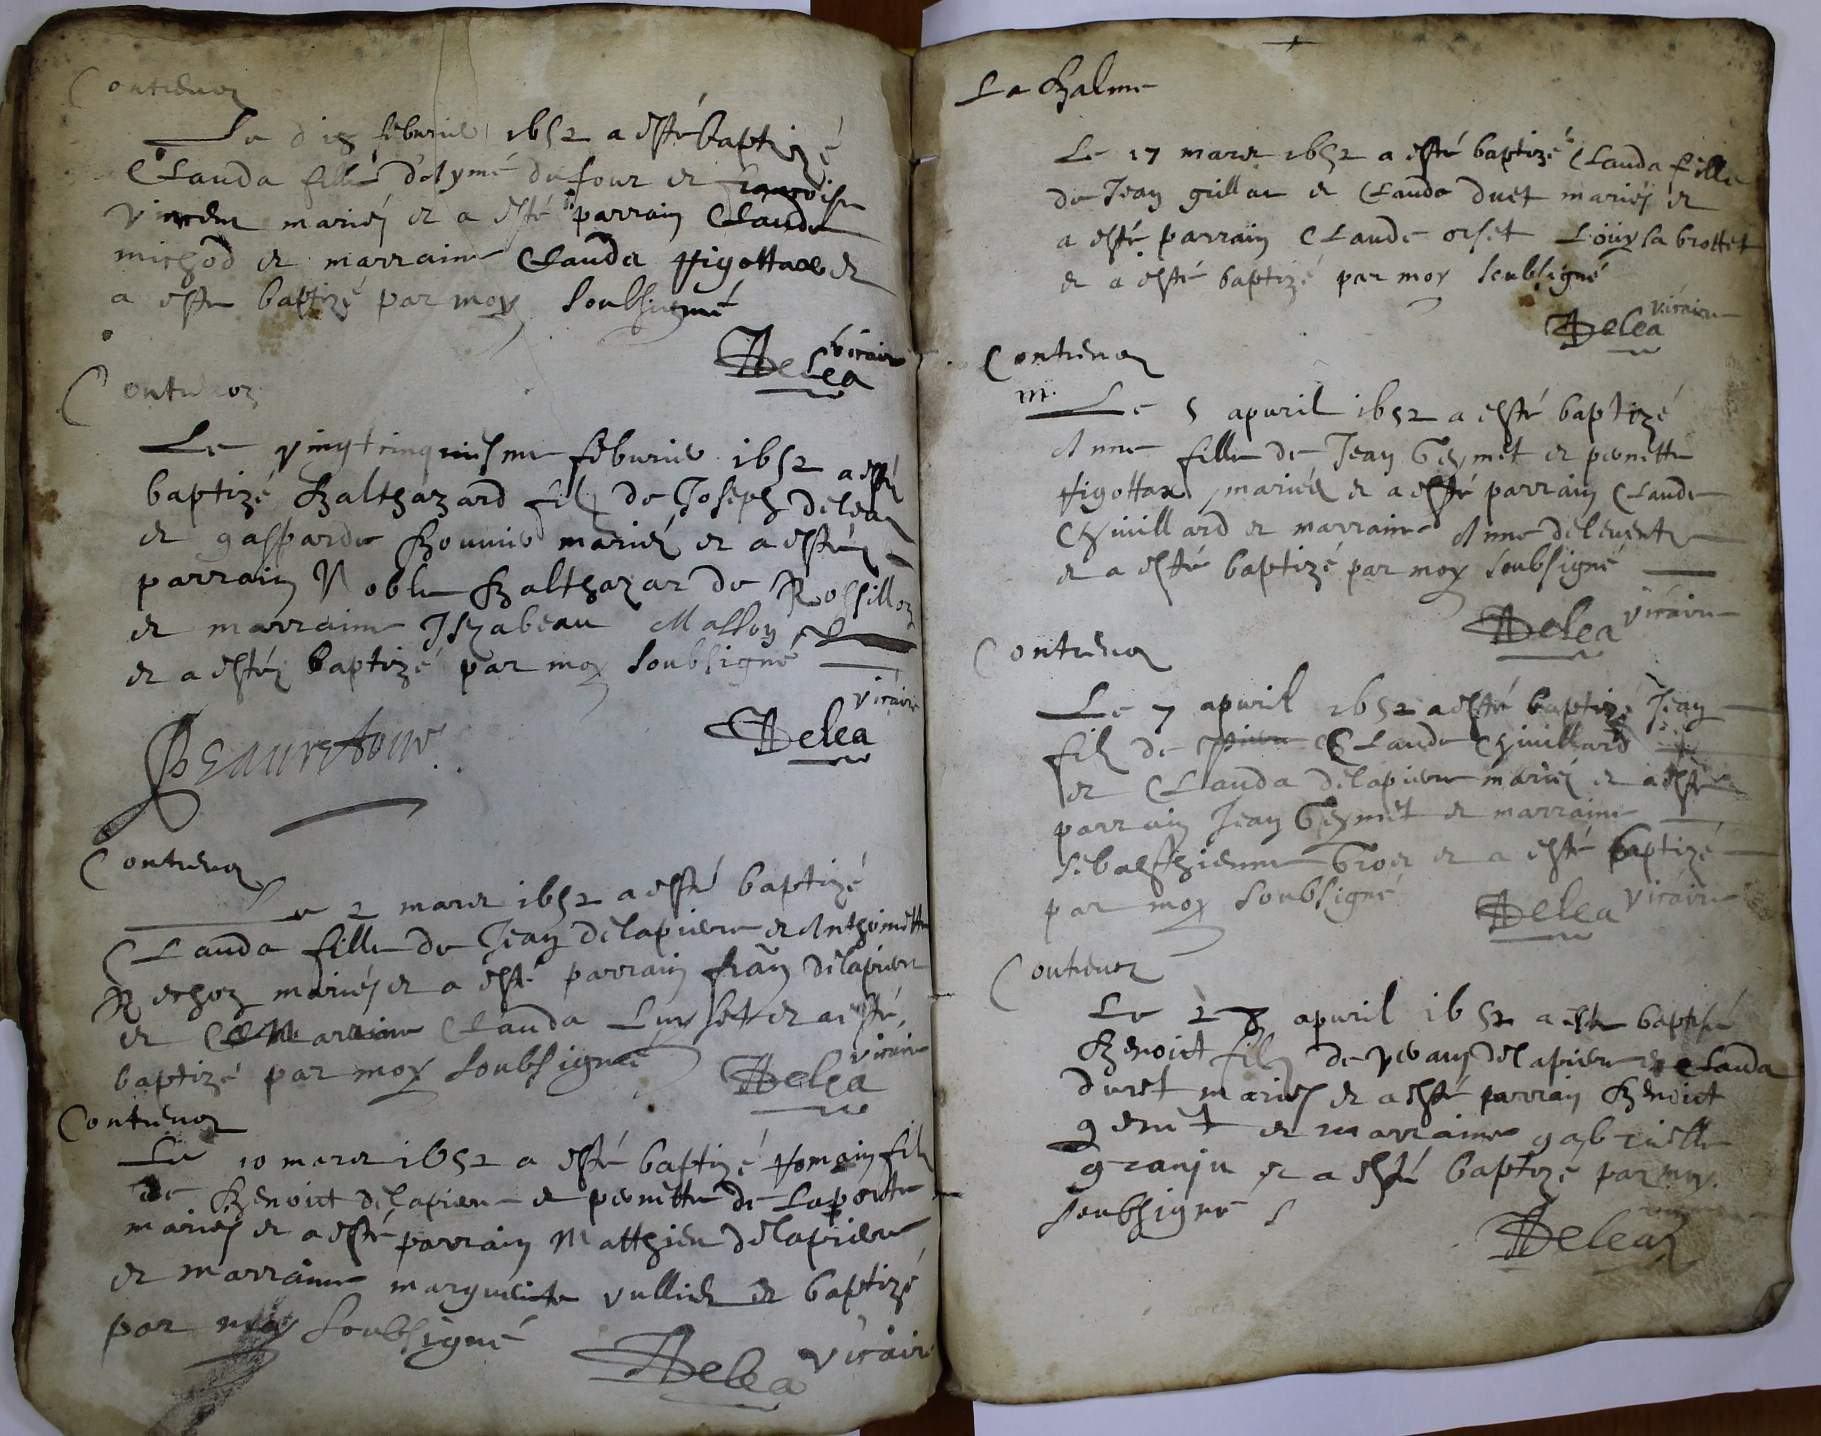 Contrevoz
Le dix febvrier 1652 a esté baptizé
Clauda fille d'Aymé dufour et françoise
vincent mariés et a esté parrain Claude
michod et marraine Clauda figottax et
a esté baptizé par moy soubsigné
vicaire
Delea
Contrevoz
Le vingtcinquiesme febvrier 1652 a esté
baptizé Balthazard filz de Joseph delea
et gasparde Bouvier mariés et a esté
parrain Noble Balthazar de Rossillon
et marraine Iszabeau Masson
et a esté baptizé par moy soubsigné
vicaire
Beauretour
Delea
Contrevoz
Le 2 mars 1652 a esté baptizé
Clauda fille de Jean delapierre et Anthoinette
Rechoz mariés et a esté parrain frãn delapierre
et Marraine Clauda Luyset et a esté
baptizé par moy soubsigné
vicaire
Delea
Contrevoz
Le 10 mars 1652 a esté baptizé Romain filz
de Benoict delapierre et pernette de Laporte
mariés et a esté parrain Matthieu delapierre
et marraine marguerite vullier et baptizé
par moy soubsigné
Delea vicaire
La Balme
Le 17 mars 1652 a esté baptizé Clauda fille
de Jean grillat et Clauda duet mariés et
a esté parrain Claude orset Louysa brottet
et a esté baptizé par moy soubsigné
vicaire
Delea
Contrevoz
m.
Le 5 apvril 1652 a esté baptizé
Anne fille de Jean Geymet et pernette
figottax mariés et a esté parrain Claude
Chivillard et marraine Anne delevente
et a esté baptizé par moy soubsigné
Delea vicaire
Contrevoz
Le 7 apvril 1652 a esté baptizé Jean
filz de pierre Claude Chivillard
et Clauda delapierre mariés et a esté
parrain Jean Geymet et marraine
sebasthienne Gros et a esté baptizé
par moy soubsigné
Delea vicaire
Contrevoz
Le 28 apvril 1652 a esté baptisé
Benoict filz de devaux delapierre et Clauda
duret mariés et a esté parrain Benoict
genet et marraine gabrielle
granju et a esté baptizé par moy
soubsigné
Delea